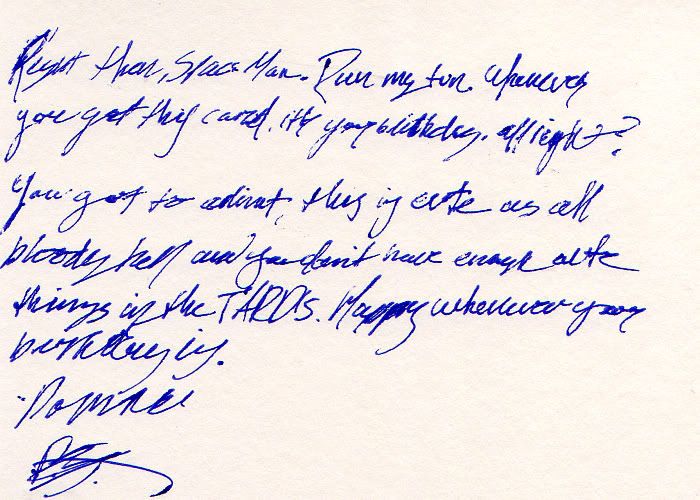 Right then, Space Man. Run my fun. Whenever
you get this card, it's your birthday. allright?
You got to admit, this is cute as all
bloody hell and you don't have enough cute
things in the TARDIS. Happy whenever your
birthday is.
Donna